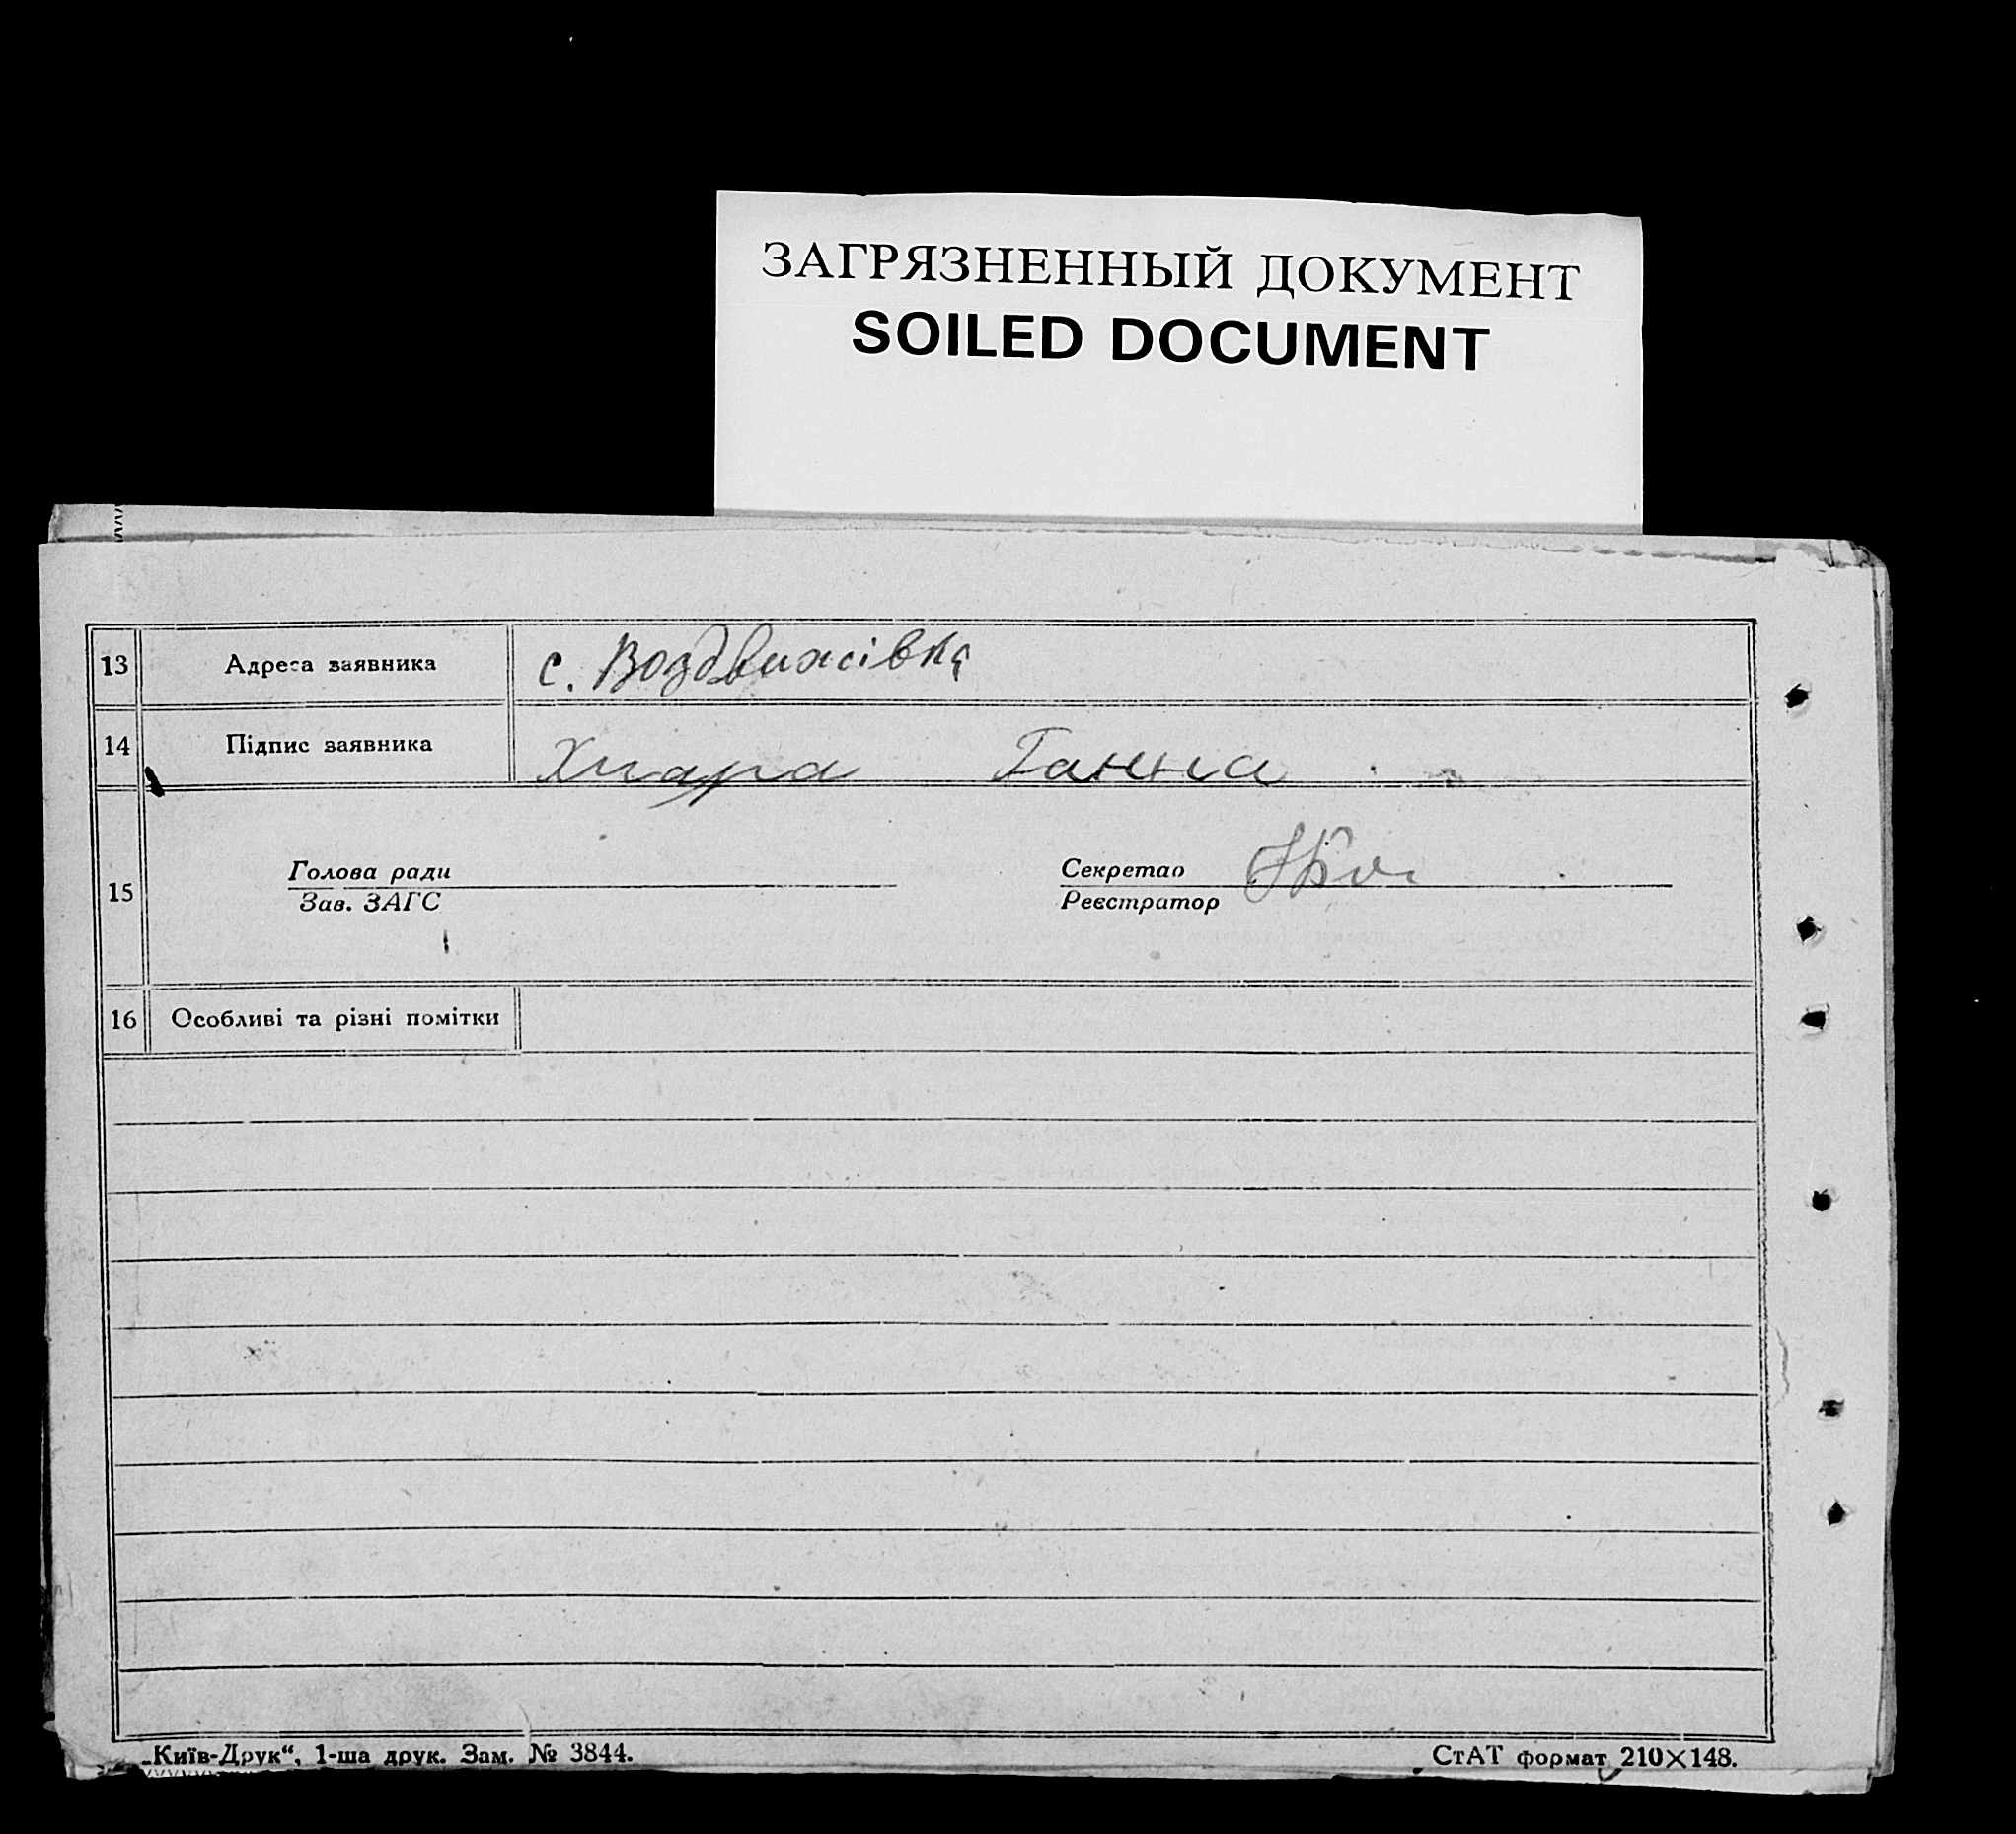 ЗАГРЯЗНЕННЫЙ ДОКУМЕНТ
SOILED DOCUMENT
13 Адреса заявника с. Воздвижівка
14 Підпис заявника Ганна
15
Голова ради Секретар
Зав. ЗАГС Реєстратор
16 Особливі та різні помітки
„Київ-Друк“, 1-ша друк. Зам. № 3844. СтАТ формат 210×148.